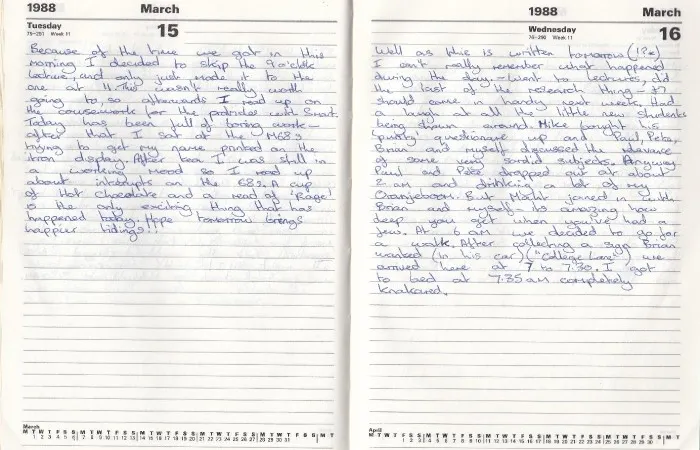 1988 March
Tuesday
75–291 Week 11
15
Because of the time we got in this
morning I decided to skip the 9 o'clock
lecture, and only just made it to the
one at 11. This wasn't really worth
going to, so afterwards I read up on
the coursework for the practicles with Smart.
Today has been full of boring work –
after that I sat at the M68's
trying to get my name printed on the
iron display. After tea I was still in
a working mood so I read up
about interrupts on the 68's. A cup
of Hot Chocolate and a read of 'Rage'
is the only exciting thing that has
happened today. Hope tomorrow brings
happier tidings!!
March
M T W T F S S M T W T F S S M T W T F S S M T W T F S S M T W T F S S M T
1 2 3 4 5 6 7 8 9 10 11 12 13 14 15 16 17 18 19 20 21 22 23 24 25 26 27 28 29 30 31
1988 March
Wednesday
76–290 Week 11
16
Well as this is written tomorrow (!?*)
I can't really remember what happened
during the day – Went to lectures, did
the last of the research thing – £7
should come in handy next week. Had
a laugh at all the little new students
being shown around. Mike bought his
'purity' questionaire up and Paul, Pete,
Brian and myself discussed the relevance
of some very sordid subjects. Anyway
Paul and Pete dropped out at about
2 am and drinking a lot of my
Oranjeboom. But joined in with
Brian and myself. Its amazing how
deep you get when you've had a
few. At 6 am we decided to go for
a walk. After collecting a sign Brian
wanted (in his car) ("College Lane") we
arrived here at 7 to 7.30. I got
to bed at 7.35 am completely
knakared.
April
M T W T F S S M T W T F S S M T W T F S S M T W T F S S M T W T F S S M T
1 2 3 4 5 6 7 8 9 10 11 12 13 14 15 16 17 18 19 20 21 22 23 24 25 26 27 28 29 30